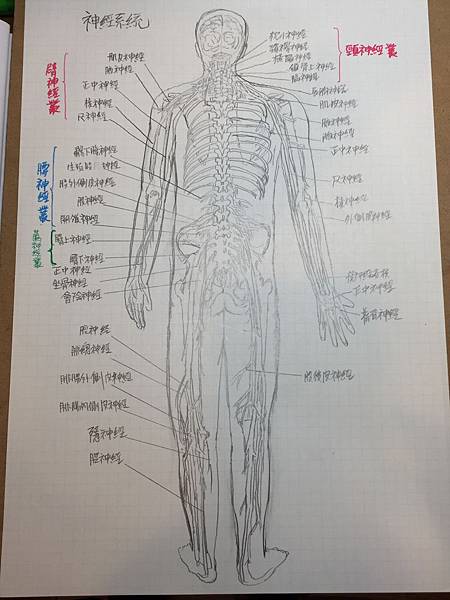 神經系統
臂神經叢
肌皮神經
腋神經
正中神經
橈神經
尺神經
腰神經叢
髂下腹神經
生殖股神經
股外側皮神經
股神經
閉鎖神經
薦神經叢
臀上神經
臀下神經
正中神經
坐骨神經
會陰神經
脛神經
腓總神經
腓腸外側皮神經
腓腸內側皮神經
隱神經
脛神經
頸神經叢
枕小神經
耳大神經
鎖骨上神經
膈神經
肌皮神經
腋神經
正中神經
尺神經
橈神經
正中神經
股後皮神經